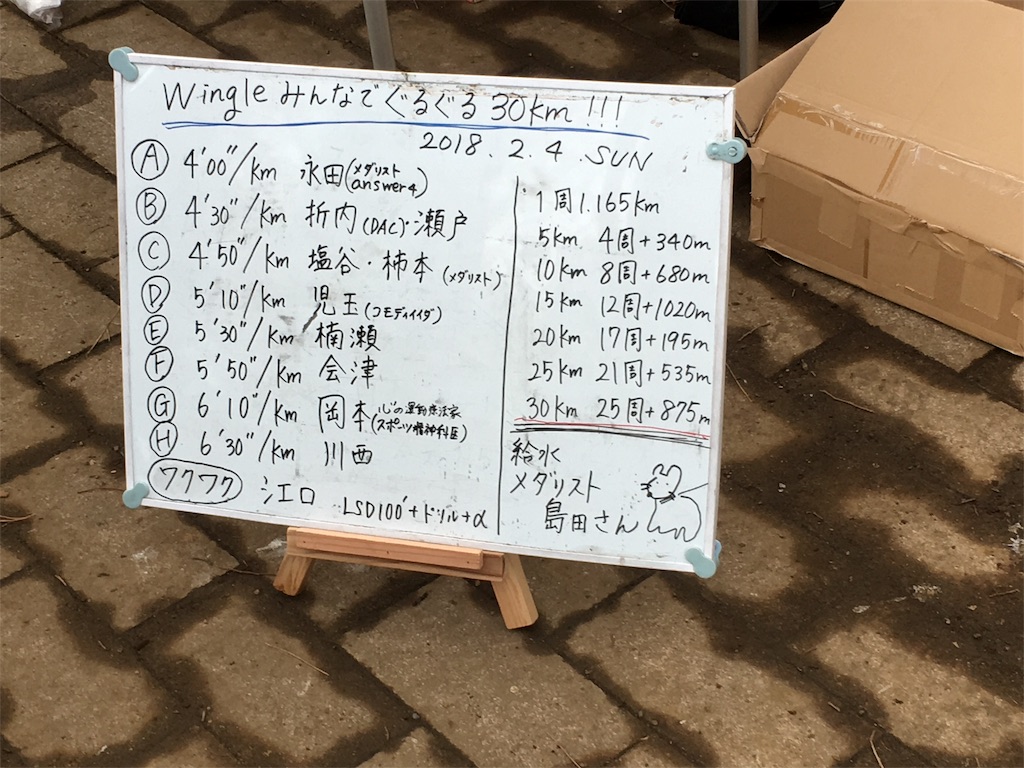 Wingle みんなでぐるぐる 30km !!!
2018. 2. 4 .SUN
Ⓐ 4'00"/km 永田(メダリスト answer4)
Ⓑ 4'30"/km 折内(DAC)・瀬戸
Ⓒ 4'50"/km 塩谷・柿本(メダリスト)
Ⓓ 5'10"/km 児玉(コモディイイダ)
Ⓔ 5'30"/km 楠瀬
Ⓕ 5'50"/km 会津
Ⓖ 6'10"/km 岡本(心の運動療法家 スポーツ精神科医)
Ⓗ 6'30"/km 川西
ワクワク 江口 LSD100'+ドリル+α
1周1.165km
5km 4周+340m
10km 8周+680m
15km 12周+1020m
20km 17周+195m
25km 21周+535m
30km 25周+875m
給水
メダリスト
島田さん